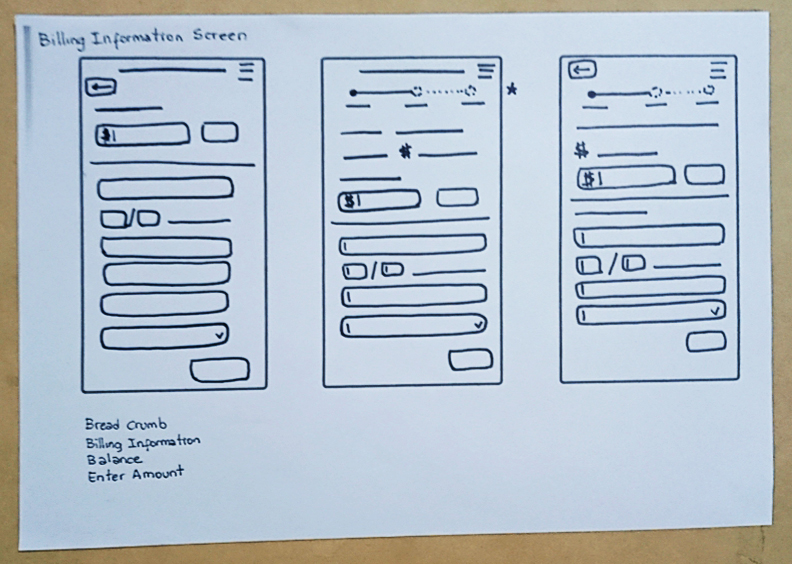 Billing Information Screen
*
$
$
$
$
$
/
/
/
Bread Crumb
Billing Information
Balance
Enter Amount